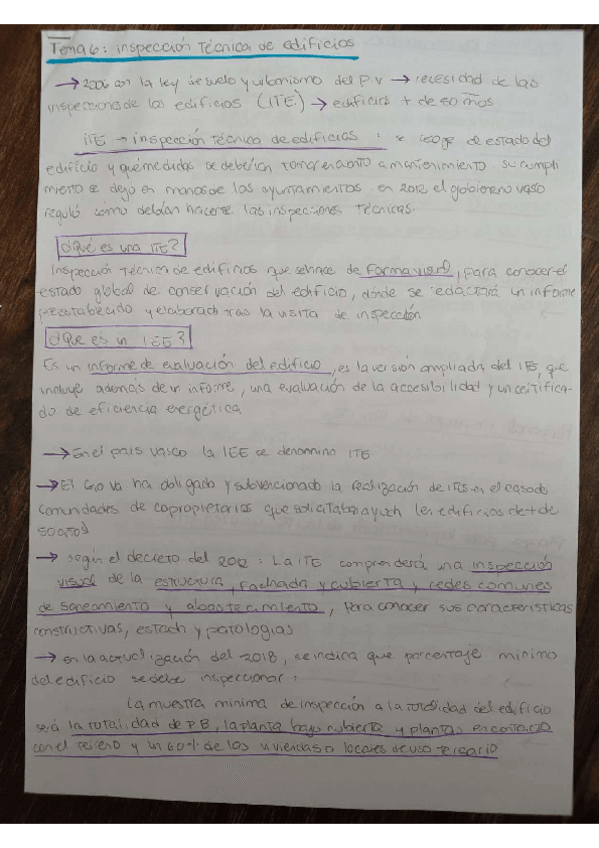 Tema 6: inspección Técnica de edificios
→ 2006 con la ley de suelo y urbanismo del P.V → necesidad de las
inspecciones de los edificios (ITE) → edificios + de 50 años
ITE → inspección técnica de edificios : se recoge de estado del
edificio y que medidas se deberían tomar en cuanto a mantenimiento su cumpli
miento se dejo en manos de los ayuntamientos en 2012 el gobierno vasco
reguló como debían hacerse las inspecciones técnicas.
¿Qué es una ITE?
Inspección Técnica de edificios que se hace de forma visual, para conocer el
estado global de conservación del edificio, dónde se redactará un informe
preestablecido y elaborado tras la visita de inspección
¿Que es un IEE?
Es un informe de evaluación del edificio, es la versión ampliada del ITE, que
incluye además de un informe, una evaluación de la accesibilidad y un certifica-
do de eficiencia energética
→ En el país vasco la IEE se denomina ITE
→ El ha obligado y subvencionado la realización de ITEs en el caso de
comunidades de copropietarios que solicitaban ayuda en edificios de + de
50 años
→ según el decreto del 2012 : La ITE comprenderá una inspección
visual de la estructura, fachada y cubierta y redes comunes
de saneamiento y abastecimiento, para conocer sus características
constructivas, estado y patologías
→ en la actualización del 2018, se indica que porcentaje mínimo
del edificio se debe inspeccionar :
La muestra mínima de inspección a la totalidad del edificio
será la totalidad de PB, la planta bajo cubierta y plantas en contacto
con el terreno y un 60% de las viviendas o locales de uso terciario